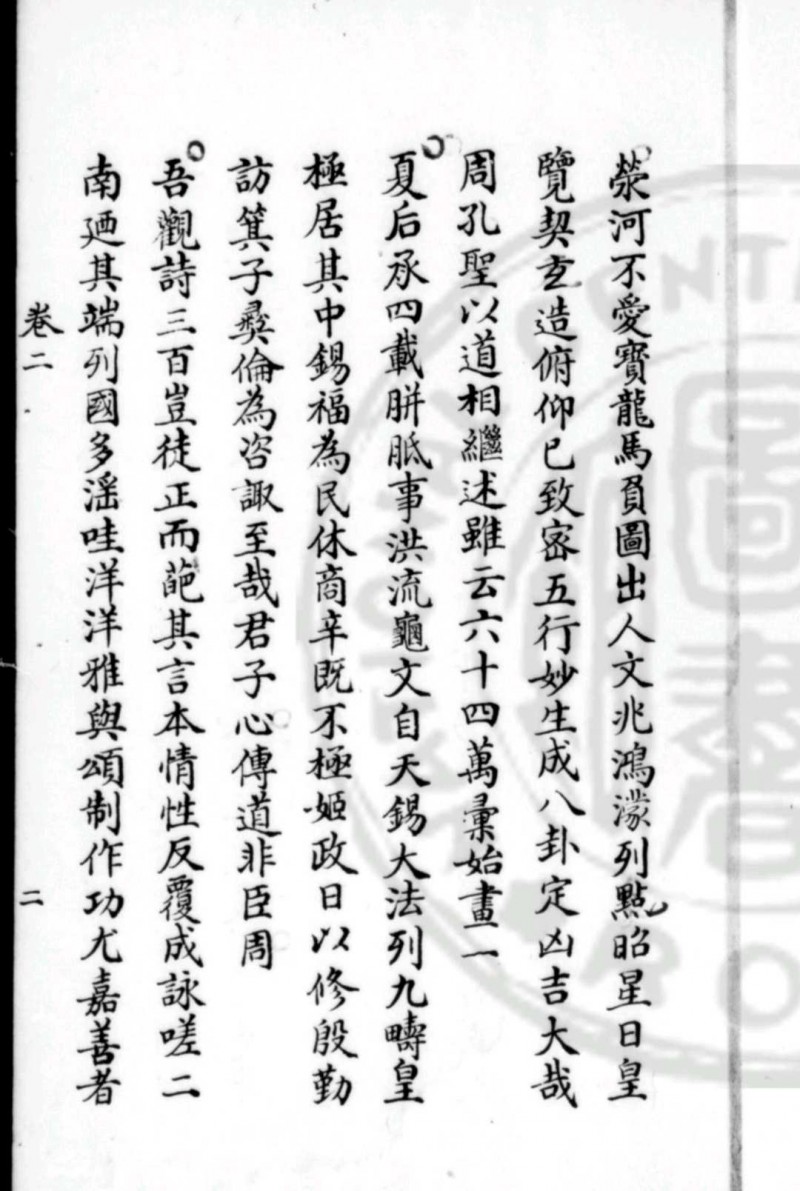 滎河不愛寶龍馬負圖出人文兆鴻濛列點昭星日皇
覽契玄造俯仰已致密五行妙生成八卦定凶吉大哉
周孔聖以道相繼述雖云六十四萬彙始畫一
夏后承四載胼胝事洪流龜文自天錫大法列九疇皇
極居其中錫福為民休商辛既不極姬政日以修殷勤
訪箕子彝倫為咨諏至哉君子心傳道非臣周
吾觀詩三百豈徒正而葩其言本情性反覆成詠嗟二
南迺其端列國多滛哇洋洋雅與頌制作功尤嘉善者
卷二
二